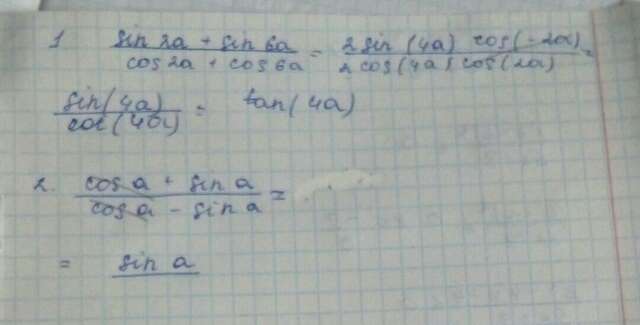 1 sin 2a + sin 6a / cos 2a + cos 6a = 2 sin (4a) cos(-2a) / 2 cos(4a) cos(2a) =
sin(4a) / cos(4a) = tan(4a)
2. cos a + sin a / cos a - sin a =
= sin a